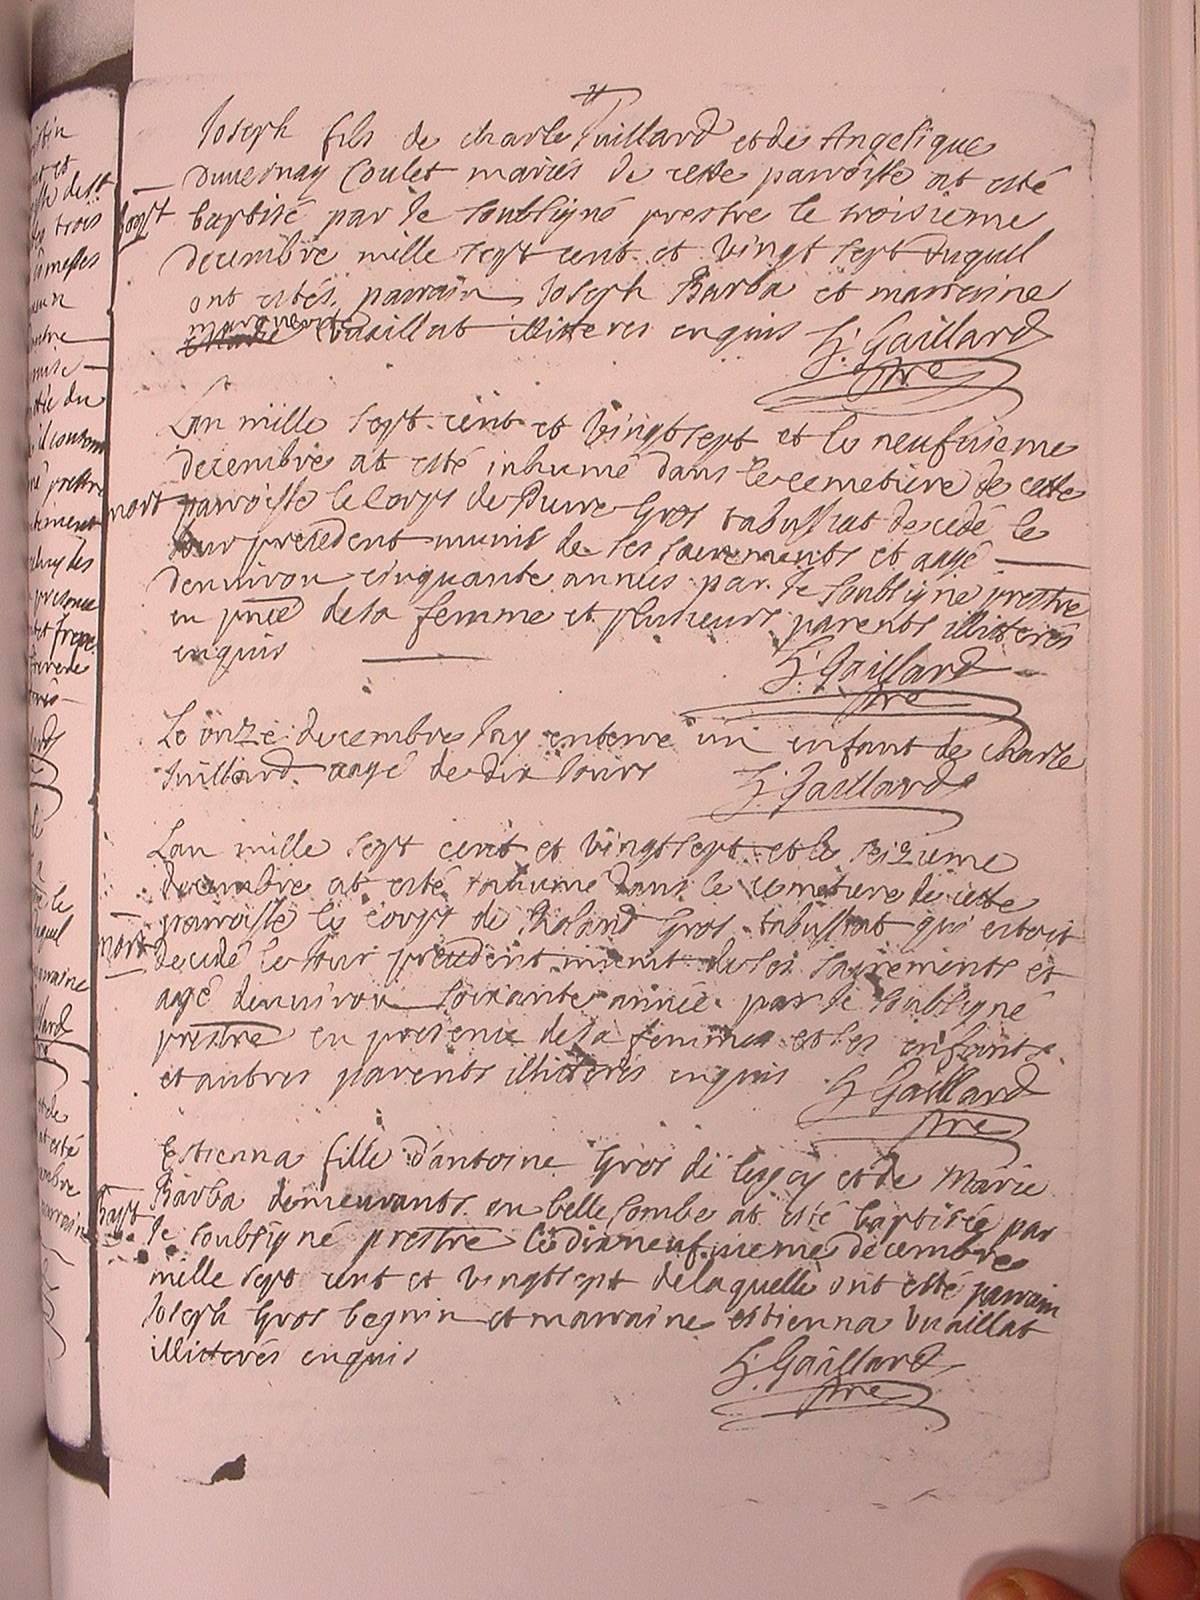 Joseph fils de charle Juillard et de Angelique
Duvernay Coulet mariés de cette parroisse at esté
bapt baptisé par Je soubsigné prestre le troisieme
decembre mille sept cent et vingt sept duquel
ont estés parrain Joseph Barba et marreine
marguerite illitteres enquis G. Gaillard
pre
Lan mille sept cent et vingt sept et le neufvieme
decembre at esté inhumé dans le cemetiere de cette
mort parroisse le corps de Pierre Gros tabussat decedé le
Jour precedent munit de ses sacrements et aagé
denviron cinquante années par Je soubsigné prestre
en pnce de sa femme et plusieurs parents illitterés
enquis G. Gaillard
pre
Le onze decembre Jay enterre un enfant de charle
Juillard aagé de dix Jours G. Gaillard
Lan mille sept cent et vingt sept et le seizieme
decembre at esté inhumé dans le cemetiere de cette
parroisse le corps de Roland Gros tabussat qui estoit
mort decedé le Jour precedent munit de ses sacrements et
aagé denviron soixante année par Je soubsigné
prestre en presence de sa femme et ses enfants
et autres parents illitterés enquis G Gaillard
pre
Estienna fille d'antoine Gros de et de Marie
Barba demeurants en belle Combe at esté baptisée par
Bapt Je soubsigné prestre le dixneufvieme decembre
mille sept cent et vingt sept de laquelle ont esté parrain
Joseph Gros begnin et marraine estienna Vuaillat
illitterés enquis G. Gaillard
pre